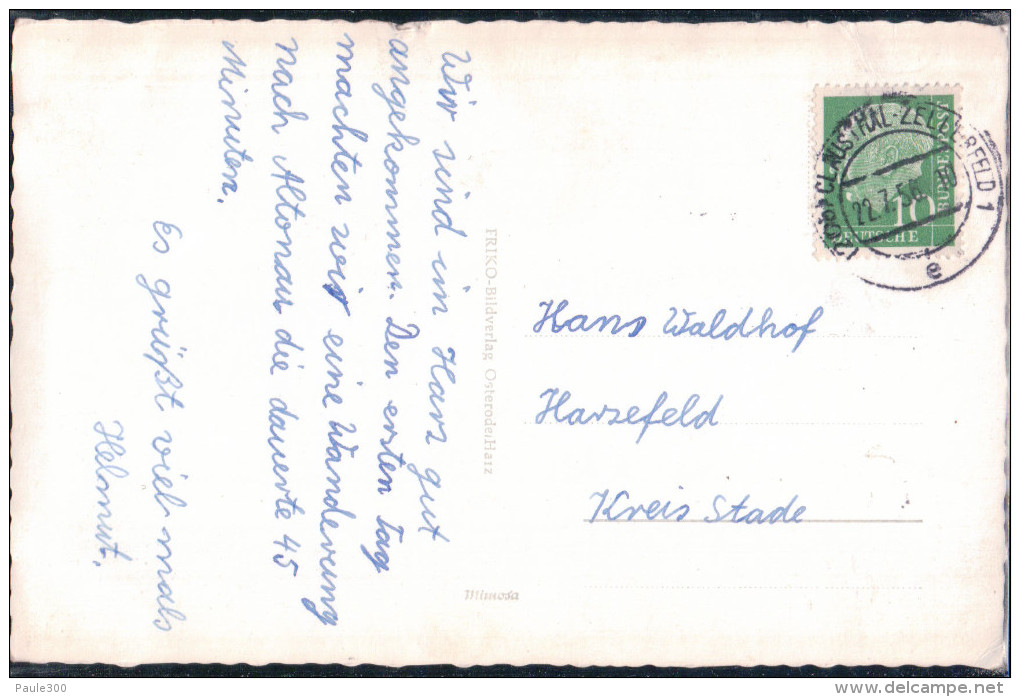 Wir sind im Harz gut
angekommen. Den ersten Tag
machten wir eine Wanderung
nach Altonau die dauerte 45
Minuten.
Es grüßt viel mals
Helmut.
FRIKO-Bildverlag Osterode/Harz
Mimosa
CLAUSTHAL-ZELLERFELD 1
22.7.56
e
10
DEUTSCHE
BUNDESPOST
Hans Waldhof
Harsefeld
Kreis Stade
Paule300
delcampe.net